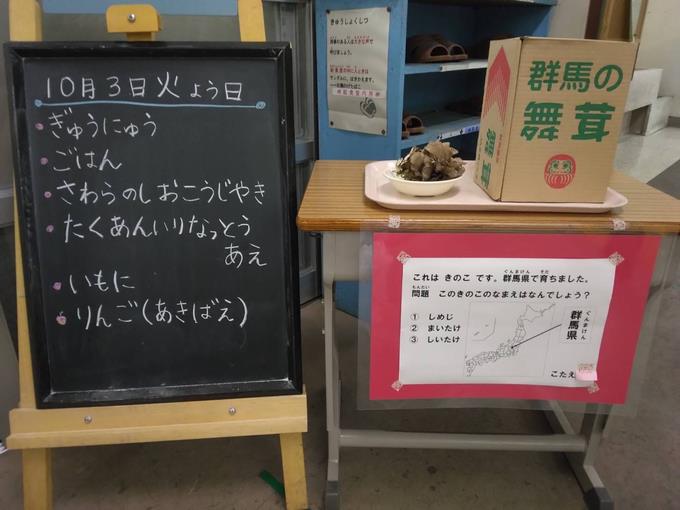 10月3日火よう日
ぎゅうにゅう
ごはん
さわらのしおこうじやき
たくあんいりなっとう
あえ
いもに
りんご(あきばえ)
きゅうしょくしつ
群馬の
舞茸
舞茸
これは きのこ です。群馬県で育ちました。
ぐんまけん そだ
問題 このきのこのなまえはなんでしょう?
もんだい
① しめじ
② まいたけ
③ しいたけ
群馬県
ぐんまけん
こたえ